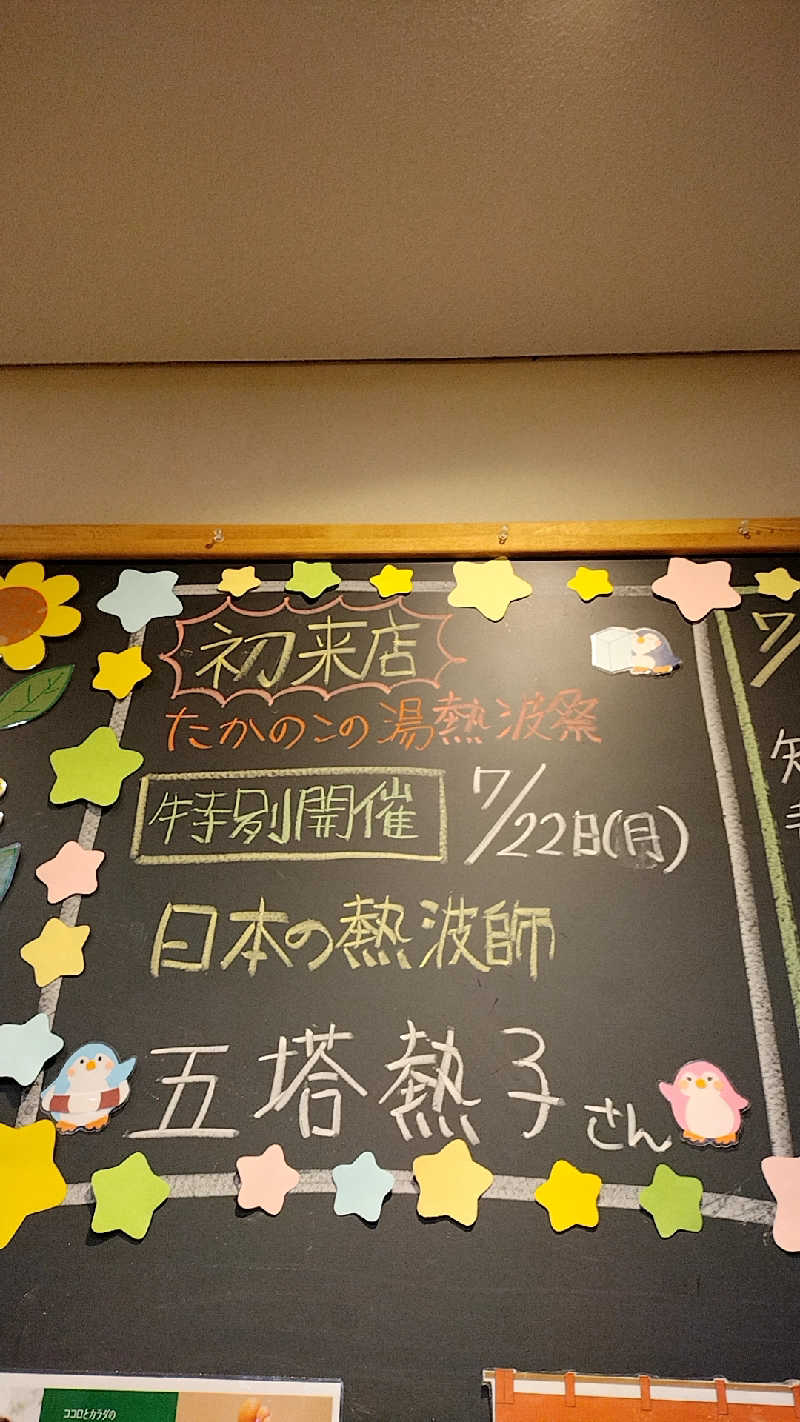 初来店
たかのこの湯熱波祭
特別開催 7/22日(月)
日本の熱波師
五塔熱子さん
7/
ココロとカラダの